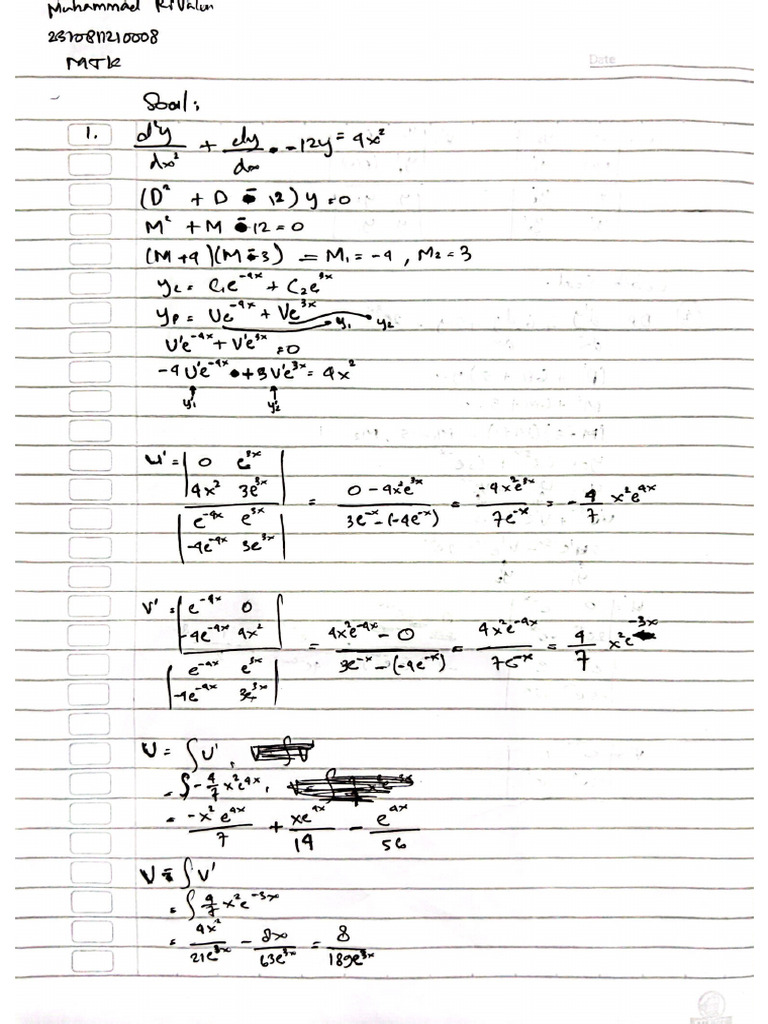 Muhammad Rivalun
2310817210008
MTK
Date
Soal:
1. d²y/dx² + dy/dx - 12y = 4x²
(D² + D - 12) y = 0
M² + M - 12 = 0
(M + 4)(M - 3) = M₁ = -4, M₂ = 3
yc = C₁e^-4x + C₂e^3x
yp = Ue^-4x + Ve^3x → y₁ → y₂
U'e^-4x + V'e^3x = 0
-4U'e^-4x + 3V'e^3x = 4x²
y₁' y₂'
U' = |0 e^3x; 4x² 3e^3x| / |e^-4x e^3x; -4e^-4x 3e^3x| = (0 - 4x²e^3x)/(3e^-x - (-4e^-x)) = -4x²e^3x/7e^-x = -4/7 x²e^4x
V' = |e^-4x 0; -4e^-4x 4x²| / |e^-4x e^3x; -4e^-4x 3e^3x| = (4x²e^-4x - 0)/(3e^-x - (-4e^-x)) = 4x²e^-4x/7e^-x = 4/7 x²e^-3x
U = ∫U',
= ∫-4/7 x²e^4x,
= -x²e^4x/7 + xe^4x/14 - e^4x/56
V = ∫V'
= ∫4/7 x²e^-3x
= 4x²/21e^3x - 8x/63e^3x = 8/189e^3x